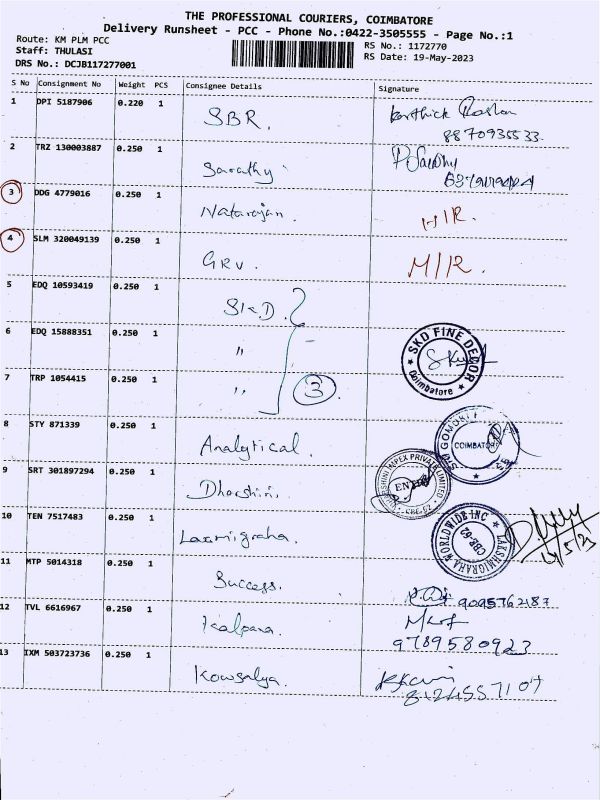 THE PROFESSIONAL COURIERS, COIMBATORE
Delivery Runsheet - PCC - Phone No.:0422-3505555 - Page No.:1
Route: KM PLM PCC
Staff: THULASI
DRS No.: DCJB117277001
RS No.: 1172770
RS Date: 19-May-2023
S No Consignment No Weight PCS Consignee Details Signature
1 DPI 5187906 0.220 1 SBR. Karthick Roshan
8870935533
2 TRZ 130003887 0.250 1 Sarathy
3 DDG 4779016 0.250 1 Natarajan.
4 SLM 320049139 0.250 1 GRV. M/R.
5 EDQ 10593419 0.250 1 SKD.
6 EDQ 15888351 0.250 1 "
SKD FINE DECOR Coimbatore
7 TRP 1054415 0.250 1 " 3
8 STY 871339 0.250 1 Analytical.
COIMBATORE
9 SRT 301897294 0.250 1 Dharshini.
IMPEX PRIVATE LIMITED CBE-62
10 TEN 7517483 0.250 1 Laxmigraha.
LAKSHMIGRAHA WORLDWIDE INC CBE-62
19/5/23
11 MTP 5014318 0.250 1 Success. 9095762187
12 TVL 6616967 0.250 1 Kalpana.
9789580923
13 IXM 503723736 0.250 1 Kowsalya.
8124557107